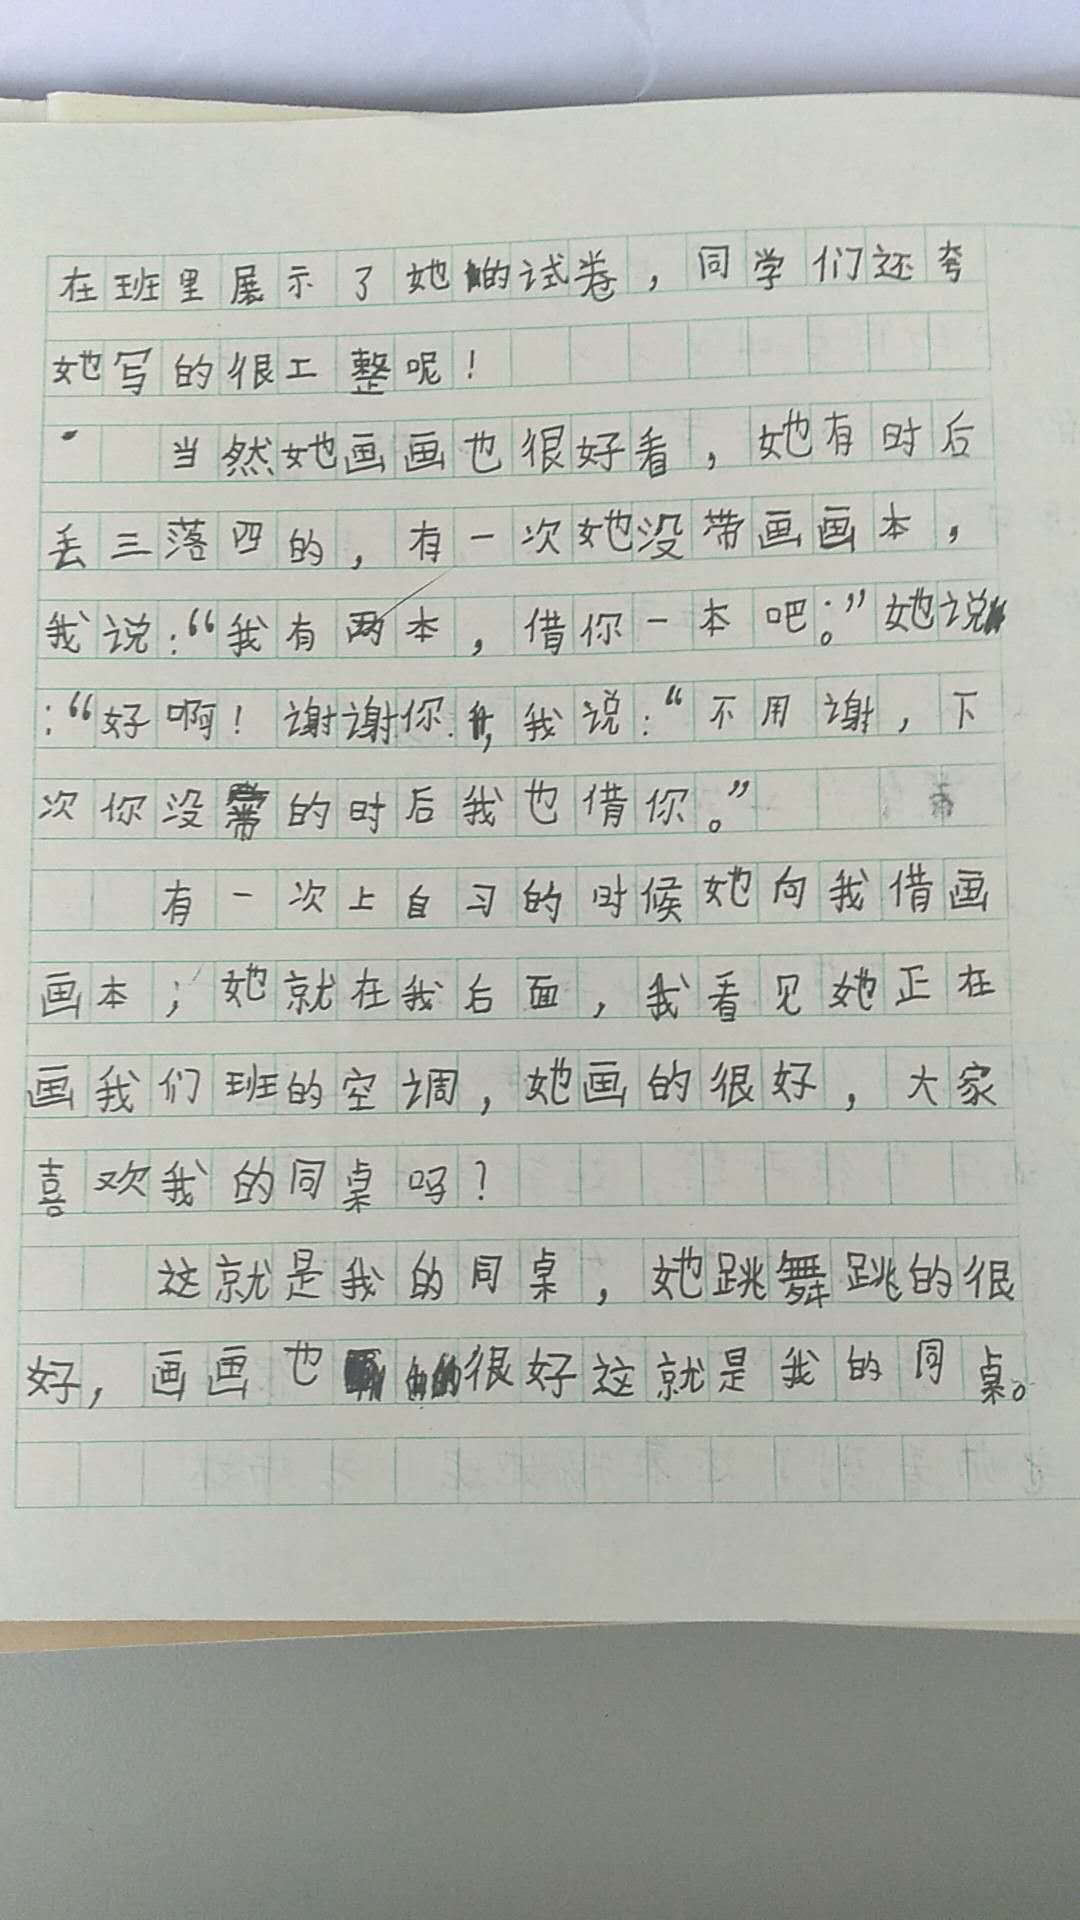 在班里展示了她的试卷，同学们还夸
她写的很工整呢！
当然她画画也很好看，她有时后
丢三落四的，有一次她没带画画本，
我说：“我有两本，借你一本吧。”她说
：“好啊！谢谢你.，我说：“不用谢，下
次你没带的时后我也借你。”
有一次上自习的时候她向我借画
画本；她就在我后面，我看见她正在
画我们班的空调，她画的很好，大家
喜欢我的同桌吗？
这就是我的同桌，她跳舞跳的很
好，画画也的很好这就是我的同桌。